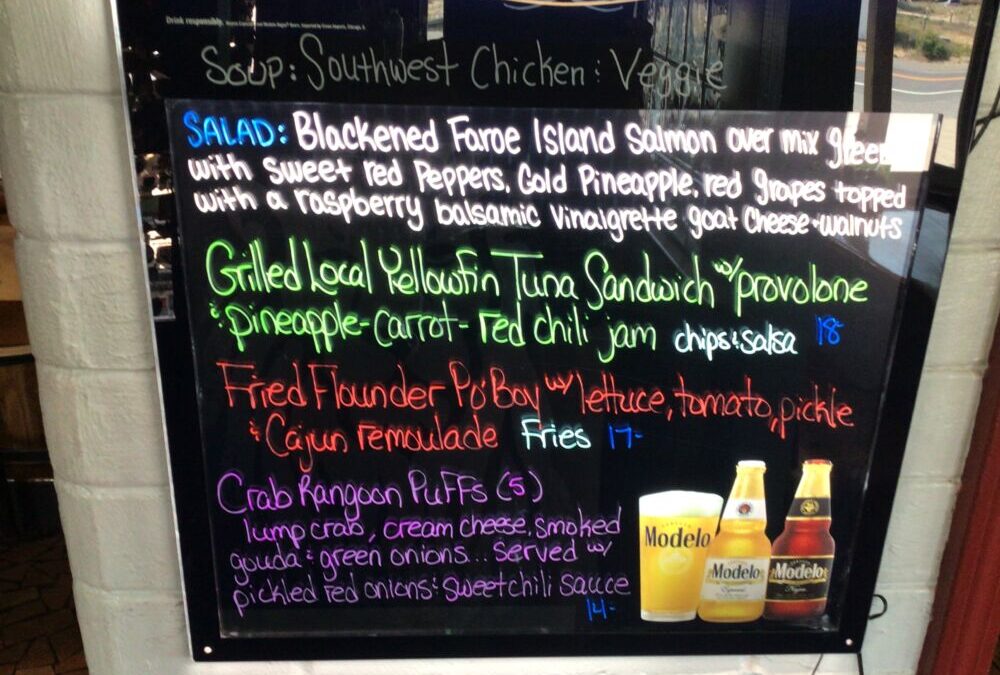 Drink responsibly.
Soup: Southwest Chicken & Veggie
SALAD: Blackened Faroe Island Salmon over mix green
with sweet red Peppers, Gold Pineapple, red grapes topped
with a raspberry balsamic Vinaigrette goat Cheese + walnuts
Grilled Local Yellowfin Tuna Sandwich w/ provolone
& pineapple-carrot-red chili jam chips & salsa 18-
Fried Flounder Po'Boy w/ lettuce, tomato, pickle
& Cajun remoulade Fries 17-
Crab Rangoon Puffs (5)
lump crab, cream cheese, smoked
gouda & green onions... Served w/
pickled red onions & sweet chili sauce
14-
Modelo
Modelo
Especial
Modelo
Negra